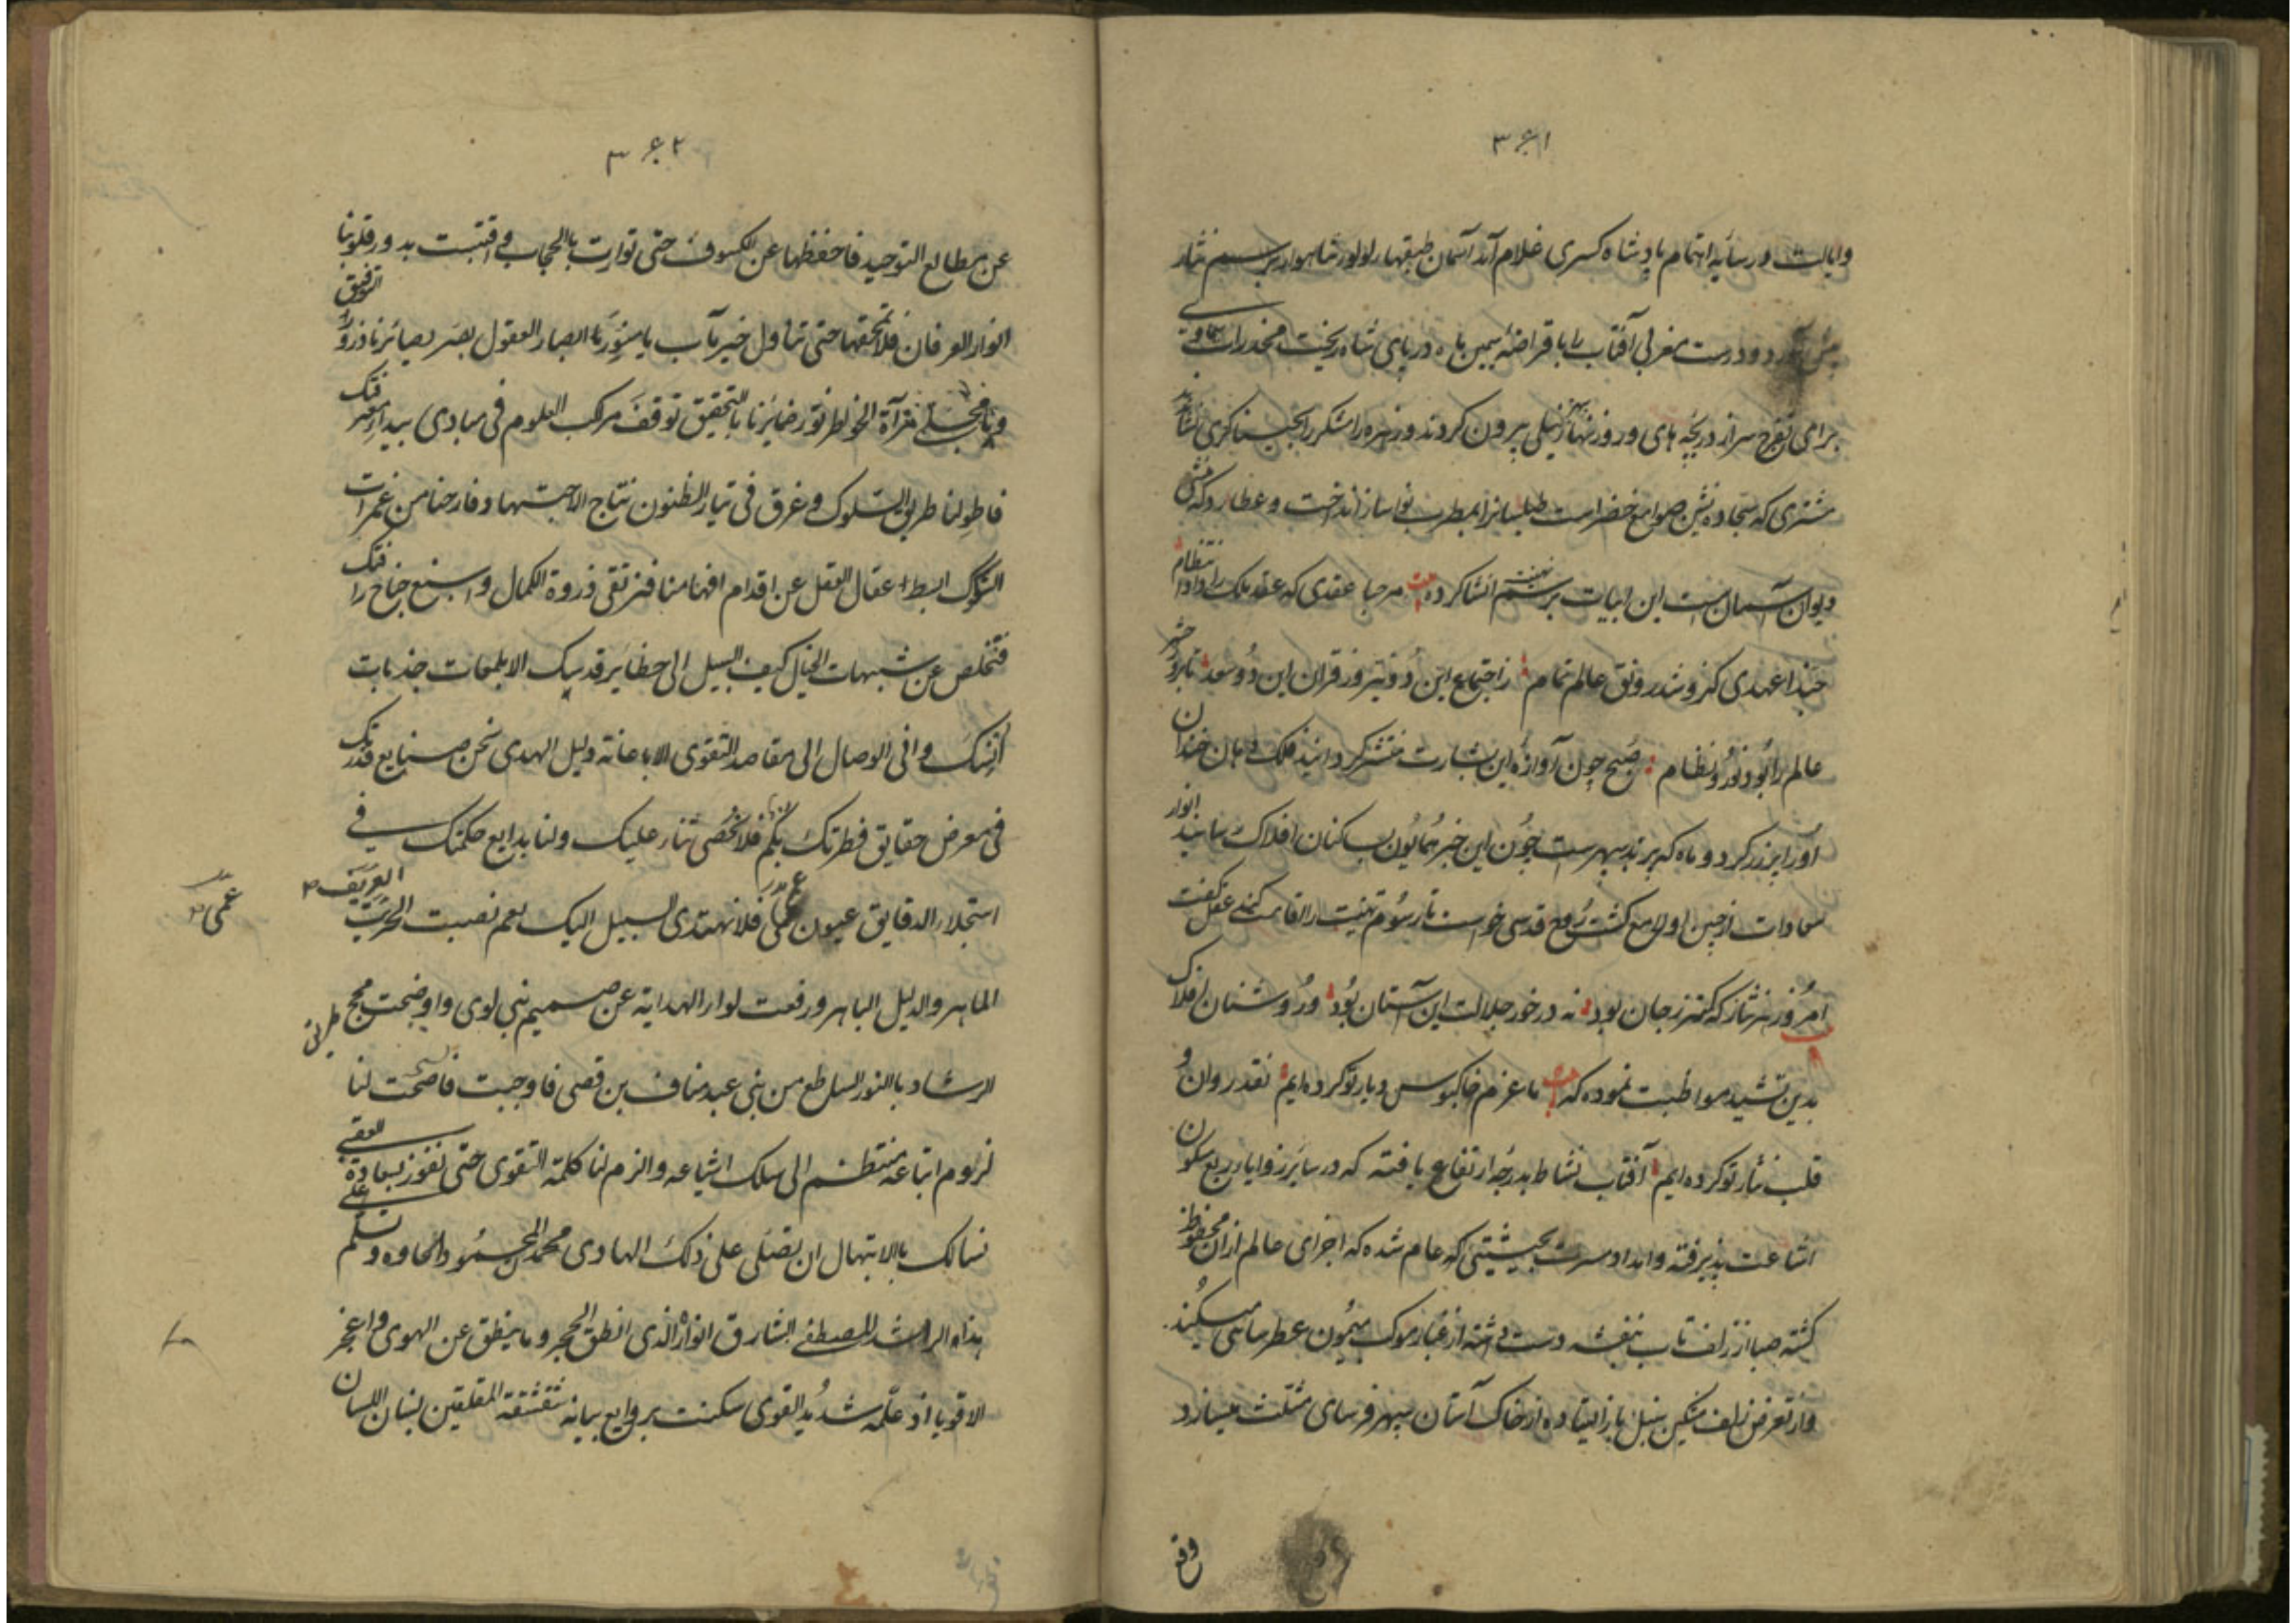 ۳۶۱
وایالت در سایه اهتمام پادشاه کسری غلام آمد آسمان طبقهاء لولو شاهوار برسم نثار
پیش آورد و درست مغربی آفتاب را با قراضه سیمین ماه در پای شاه ریخت مخدرات سماوی
برای تفرج سر از دریچه های و روزنهای نیلی بیرون کردند و زهره را شکر
مشتری که سجاده نشین صوامع خضراست طیلسانرا بمطرب نواساز انداخت و عطارد که منشی
دیوان آسمانست این ابیات برسم تهنیت انشا کرده بیت مرحبا عقدی که عقد ملک را داد انتظام
حبذا عهدی کزو شد رونق عالم تمام ز اجتماع این دو نیر وز قران این دو سعد تا بروز حشر
عالم را بود نور و نظام صبح چون آوازه این بشارت منتشر گردانید فلک دهان خندان
او را پر زر کرد و ماه که برید سپهرست چون این خبر همایون بساکنان افلاک رسانید انوار
سعادات از جبین او لامع گشت روح قدسی خواست تا رسوم تهنیت را اقامت کند عقل گفت
امروز نثار که کمتر ز جان بود نه درخور جلالت این آستان بود و روشنان افلاک
بدین نشید مواظبت نموده که بیت ما عزم خاکبوس دیار تو کرده ایم نقد روان و
قلب نثار تو کرده ایم آفتاب نشاط بدرجه ارتفاع یافته که در سایر زوایا ربع مسکون
اشاعت پذیرفته و امداد مسرت بحیثیتی که عام شده که اجزای عالم از ان محظوظ
گشته صبا از زلف تاب بنفشه دست داشته از غبار موکب میمون عطرسایی میکند
و از تعرض زلف مشکین سنبل باز ایستاده از خاک آستان سپهر فرسای مثلث میسازد
وقع
۳۶۲
عن مطالع التوحید فاحفظها عن الکسوف حتی توارت بالحجاب و اقتبست بدور قلوبنا
انوار العرفان فلا تمحقها حتی تناول خیر مآب یا منور ابصار العقول بصر بصایرنا ذرور التوفیق
ویا مجلی مرآة الخواطر نور ضمایرنا بالتحقیق توقف مرکب العلوم فی مبادی بیداء معرفتک
فاطو لنا طریق السلوک و غرق فی تیار الظنون نتاج الاجتهاد فارحنا من غمرات
الشکوک ابسط عقال العقل عن اقدام افهامنا فنرتقی ذروة الکمال واسبغ جناح رافتک
فتخلص عن شبهات الخیال کیف السبیل الی حظایر قدسک الا بلمعات جذبات
انسک وانی الوصال الی مقاصد التقوی الا باعانة دلیل الهدی نحن صنایع قدرتک
فی معرض حقایق فطرتک بکم فلا نحصی ثناء علیک ولنا بدایع حکمتک فی
استجلاء الدقایق عیون عمی فلا نهتدی السبیل الیک نعم نصبت الخریت العریف
عمی
الماهر والدلیل الباهر ورفعت لواء الهدایة عن صمیم بنی لوی واوضحت محج طرایق
الرشاد بالنور الساطع من بنی عبد مناف بن قصی فاوجبت فاضحت لنا
لزوم اتباعه منتظم الی سلک اشیاعه والزم لنا کلمة التقوی حتی نفوز بسعادة العقبی
نسالک بالابتهال ان تصلی علی ذلک الهادی محمد المحمود وتسلم علی
هذا الراشد المصطفی الشارق انواره الذی انطق الحجر وما ینطق عن الهوی واعجز
الاقویا اذ علمه شدید القوی سکنت بروایع بیانه شقشقة المفلقین بلسان اللسان